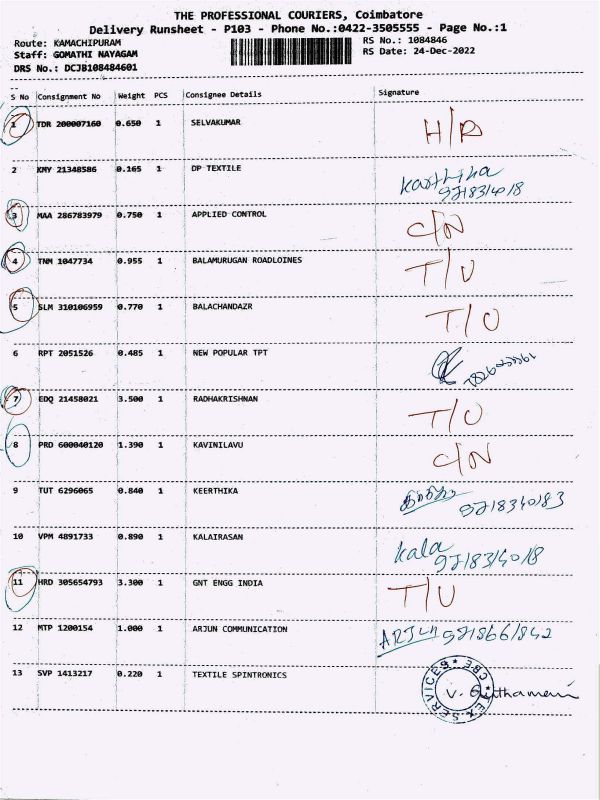 THE PROFESSIONAL COURIERS, Coimbatore
Delivery Runsheet - P103 - Phone No.:0422-3505555 - Page No.:1
Route: KAMACHIPURAM RS No.: 1084846
Staff: GOMATHI NAYAGAM RS Date: 24-Dec-2022
DRS No.: DCJB108484601
S No Consignment No Weight PCS Consignee Details Signature
1 TDR 200007160 0.650 1 SELVAKUMAR H/R
2 KMY 21348586 0.165 1 DP TEXTILE Karthika
3 MAA 286783979 0.750 1 APPLIED CONTROL C/N
4 TNM 1047734 0.955 1 BALAMURUGAN ROADLOINES T/U
5 SLM 310106959 0.770 1 BALACHANDAZR T/O
6 RPT 2051526 0.485 1 NEW POPULAR TPT
7 EDQ 21458021 3.500 1 RADHAKRISHNAN T/U
8 PRD 600040120 1.390 1 KAVINILAVU C/N
9 TUT 6296065 0.840 1 KEERTHIKA
10 VPM 4891733 0.890 1 KALAIRASAN Kala
11 HRD 305654793 3.300 1 GNT ENGG INDIA T/U
12 MTP 1200154 1.000 1 ARJUN COMMUNICATION ARJUN
13 SVP 1413217 0.220 1 TEXTILE SPINTRONICS
TEX SERVICES * CBE *